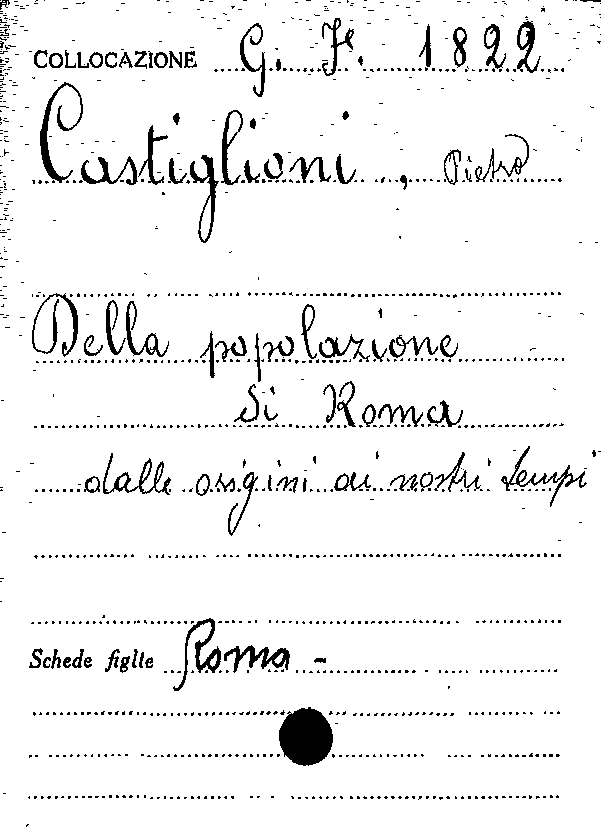 COLLOCAZIONE G. F. 1822
Castiglioni, Pietro
Della popolazione
di Roma
dalle origini ai nostri tempi
Schede figlie Roma -